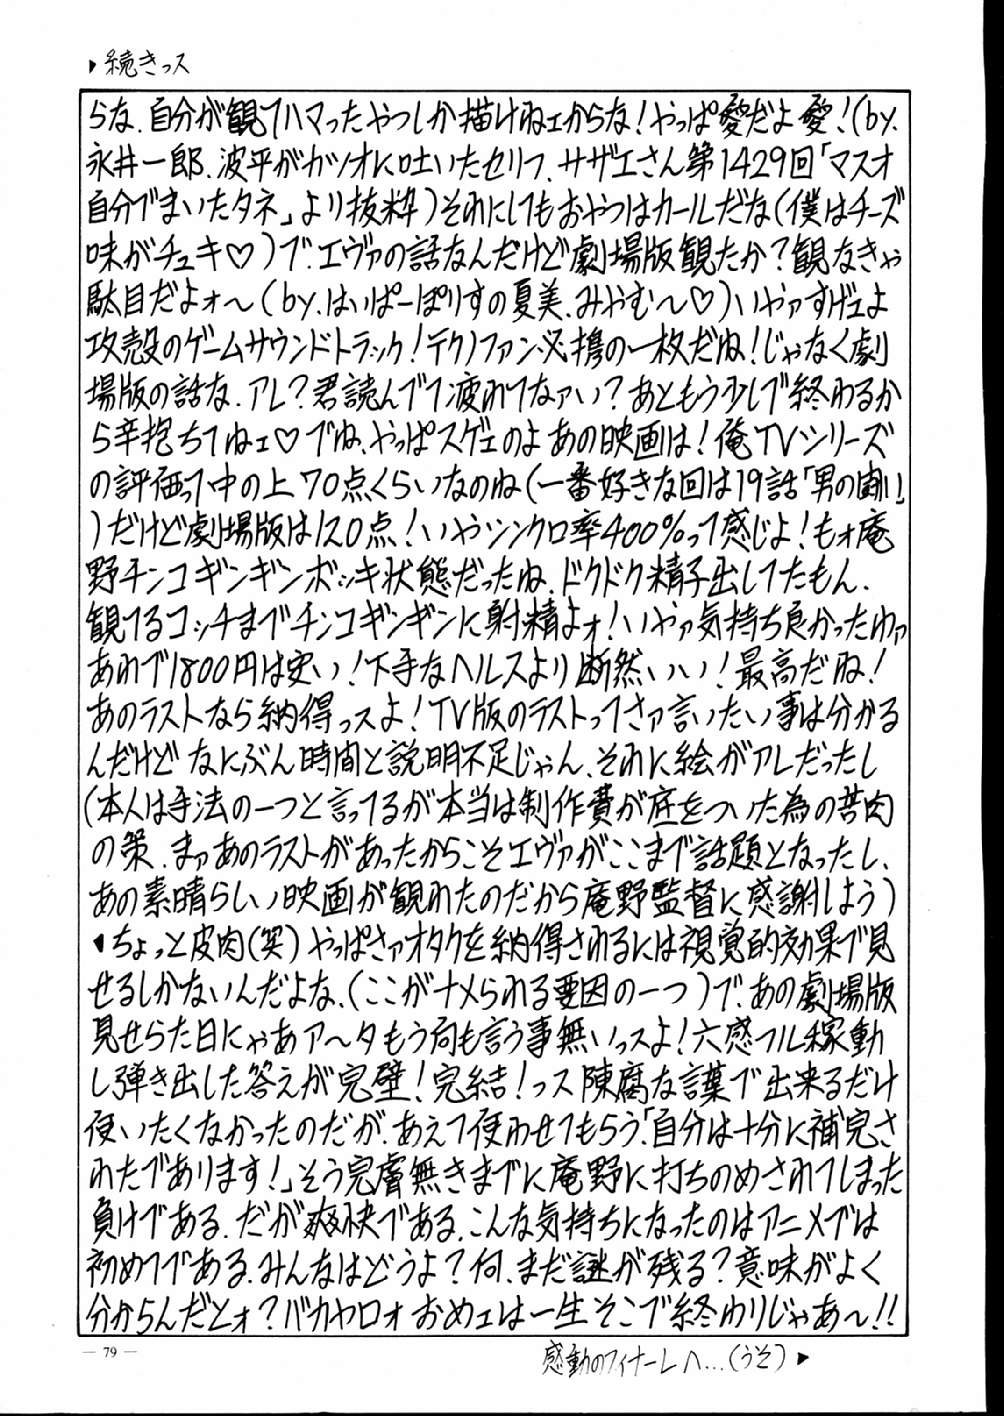 ▶続きっス
らな、自分が観てハマったやつしか描けねェからな！やっぱ愛だよ愛！（by.
永井一郎、波平がカツオに吐いたセリフ、サザエさん第1429回「マスオ
自分でまいたタネ」より抜粋）それにしてもおやつはカールだな（僕はチーズ
味がチュキ♡）で、エヴァの話なんだけど劇場版観たか？観なきゃ
駄目だよォ～（by.はいぱーぽりすの夏美、みやむ～♡）いやァすげェよ
攻殻のゲームサウンドトラック！テクノファン必携の一枚だね！じゃなく劇
場版の話な、アレ？君読んでて疲れてなァい？あともう少しで終わるか
ら辛抱ちてねェ♡でね、やっぱスゲェのよあの映画は！俺TVシリーズ
の評価って中の上70点くらいなのね（一番好きな回は19話「男の闘い」
）だけど劇場版は120点！いやシンクロ率400%って感じよ！もォ庵
野チンコギンギンボッキ状態だったね、ドクドク精子出してたもん、
観てるコッチまでチンコギンギンに射精よォ！いやァ気持ち良かったわァ
あれで1800円は安い！下手なヘルスより断然いい！最高だね！
あのラストなら納得っスよ！TV版のラストってさァ言いたい事は分かる
んだけどなにぶん時間と説明不足じゃん、それに絵がアレだったし
（本人は手法の一つと言ってるが本当は制作費が底をついた為の苦肉
の策、まァあのラストがあったからこそエヴァがここまで話題となったし、
あの素晴らしい映画が観れたのだから庵野監督に感謝しよう）
▼ちょっと皮肉（笑）やっぱさァオタクを納得されるには視覚的効果で見
せるしかないんだよな、（ここがナメられる要因の一つ）で、あの劇場版
見せらた日にゃあア～タもう何も言う事無いっスよ！六感フル稼動
し弾き出した答えが完璧！完結！っス陳腐な言葉で出来るだけ
使いたくなかったのだが、あえて使わせてもらう、「自分は十分に補完さ
れたであります！」そう完膚無きまでに庵野に打ちのめされてしまった
負けである、だが爽快である、こんな気持ちになったのはアニメでは
初めてである、みんなはどうよ？何、まだ謎が残る？意味がよく
分からんだとォ？バカヤロォおめェは一生そこで終わりじゃあ～！！
— 79 —
感動のフィナーレへ…（うそ）▶